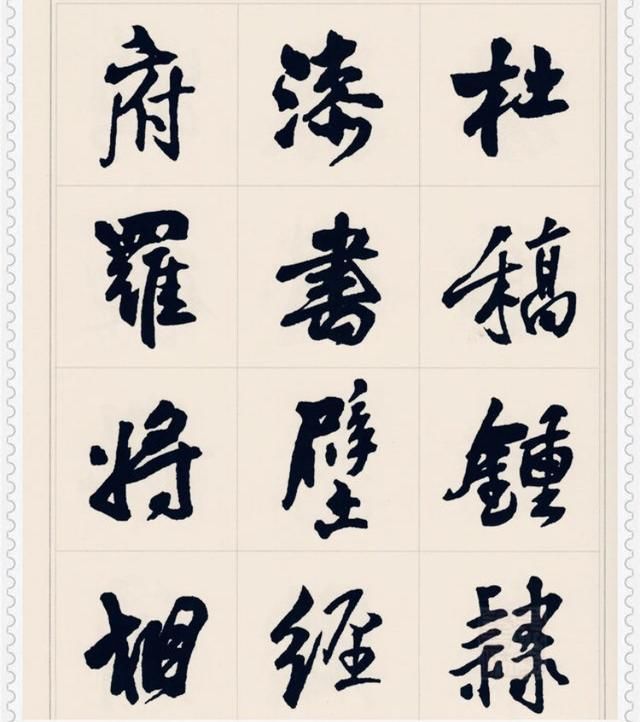 杜稿鍾隸
漆書壁經
府羅將相